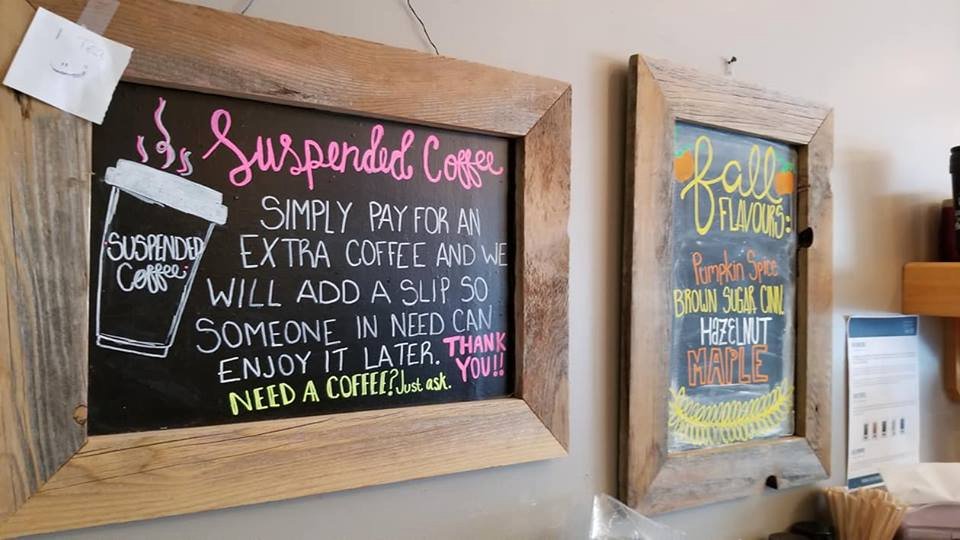 Suspended Coffee
SIMPLY PAY FOR AN
EXTRA COFFEE AND WE
WILL ADD A SLIP SO
SOMEONE IN NEED CAN
ENJOY IT LATER.
THANK
YOU!!
NEED A COFFEE? Just ask.
SUSPENDED
Coffee
fall
FLAVOURS:
Pumpkin Spice
BROWN SUGAR CINN.
HAZELNUT
MAPLE